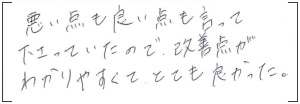 悪い点も良い点も言って
下さっていたので、改善点が
わかりやすくて、とても良かった。